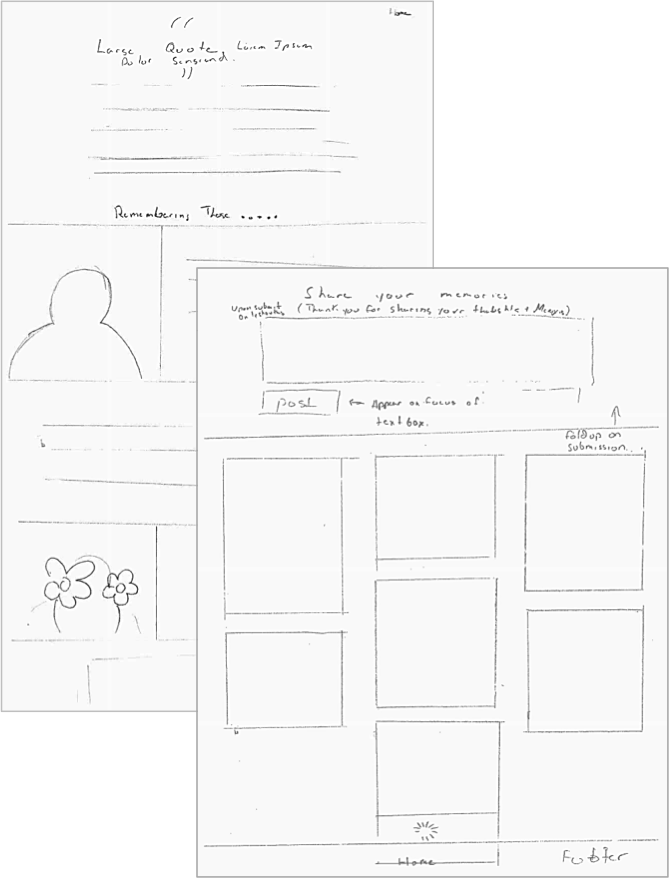 Home
“
Large Quote, Lorem Ipsum
Dolor
”
Remembering Those .....
Share your memories
Upon submit
(Thank you for sharing your thoughts +
post
← Appear on focus of
textbox.
fold up on
submission.
Home
Footer